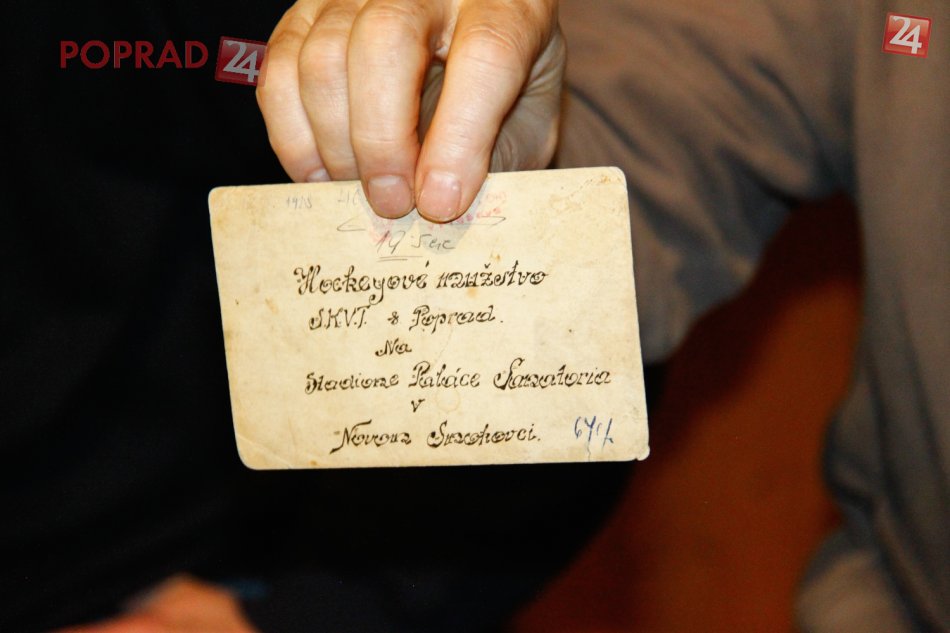 POPRAD 24
24
1928
19 Sec
Hockeyové mužstvo
S.K.V.T. & Poprad.
Na
Stadione Paláce Sanatoria
v
Novom Smokovci.